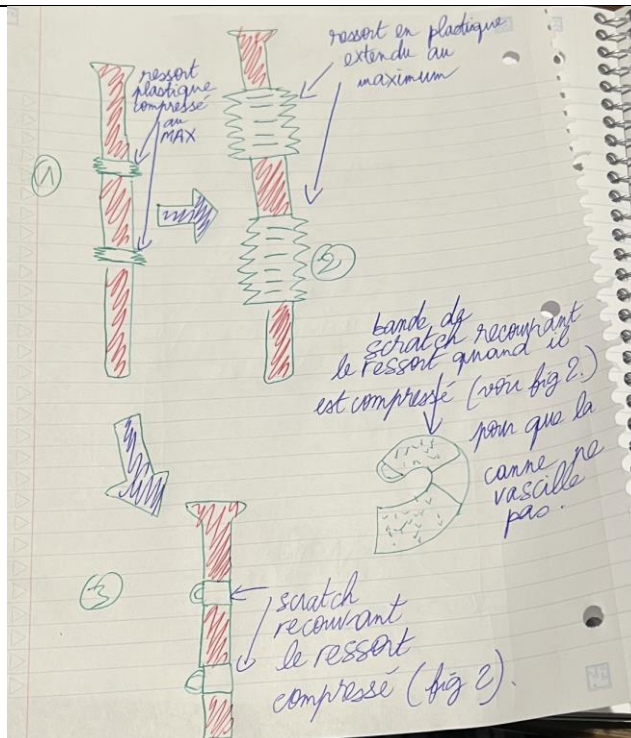 ressort
plastique
compressé
au
MAX
ressort en plastique
extendu au
maximum
1
2
bande de
scratch recouvrant
le ressort quand il
est compressé (voir fig 2.)
pour que la
canne ne
vascille
pas.
3
scratch
recouvrant
le ressort
compressé (fig 2).